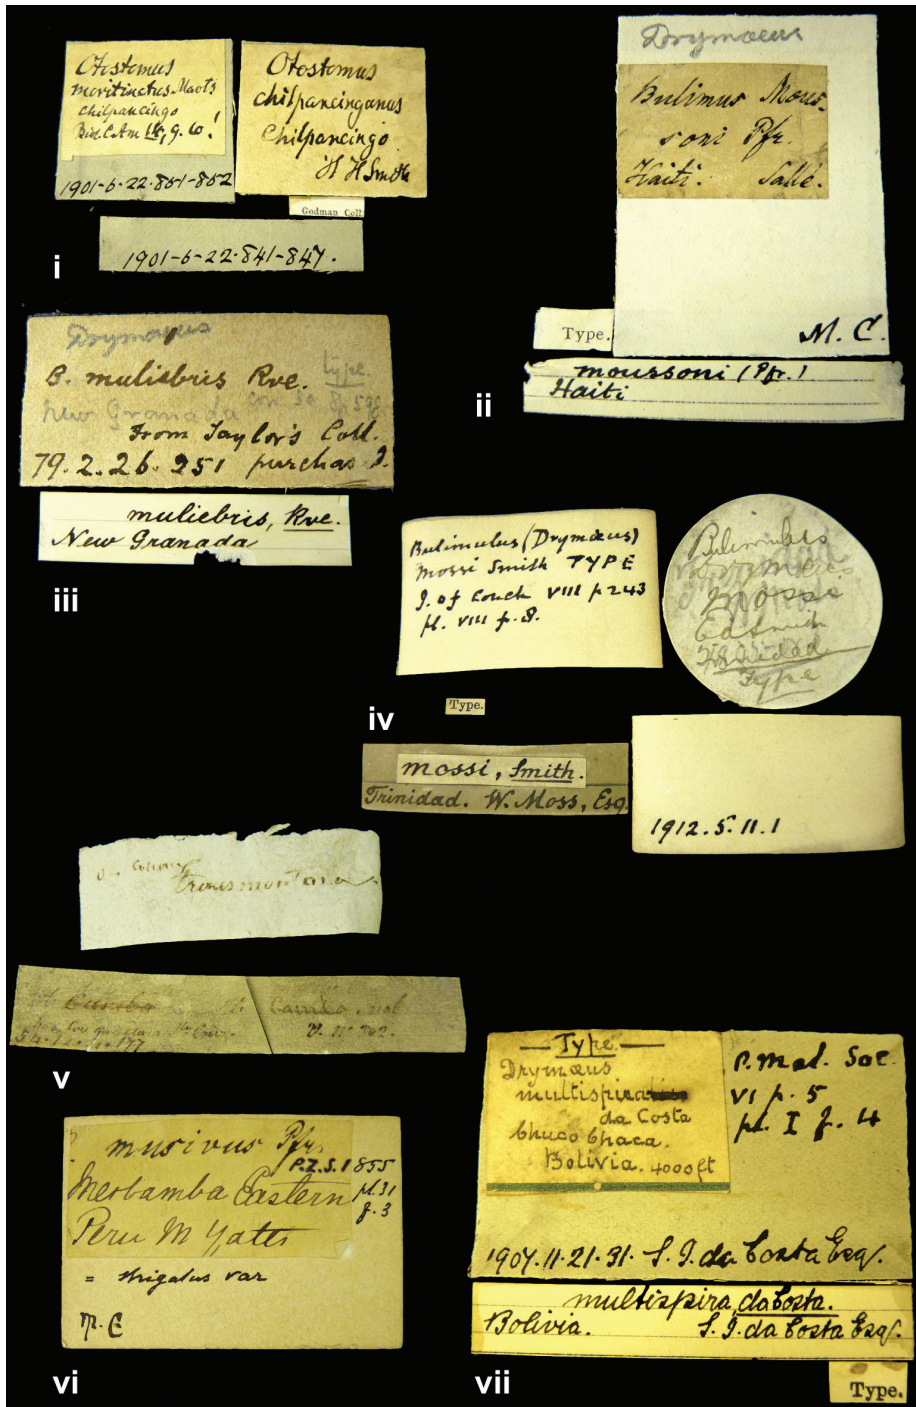 Otostomus
Chilpancingo
Biol. C. Am
1901-6-22.851-852
Otostomus
chilpancinganus
Chilpancingo
H H Smith
Godman Coll.
1901-6-22.841-847.
i
Drymaeus
Bulimus Mous-
soni Pfr.
Haiti. Sallé.
M. C.
Type.
moussoni (Pfr.)
Haiti
ii
Drymaeus
B. muliebris Rve. type.
New Granada con. Ic
From Taylor's Coll.
79.2.26.251 purchas d.
muliebris, Rve.
New Granada
iii
Bulimulus (Drymæus)
Mossi Smith TYPE
J. of Conch VIII p 243
pl. VIII f. 8.
Bulimulus
Drymæus
Mossi
Ed Smith
Trinidad
Type
iv
Type.
mossi, Smith.
Trinidad. W. Moss, Esq.
1912.5.11.1
transmontana
v
musivus Pfr.
P.Z.S. 1855
Meobamba Eastern pl. 31
f. 3
Peru M Yates
= strigatus var
M. C
vi
Type.
Drymæus
multispira
da Costa
Chuco Chaca.
Bolivia. 4000ft
P. Mal. Soc.
VI p. 5
pl. I f. 4
1907.11.21.31. S. I. da Costa Esq.
multispira, da Costa.
Bolivia. S. I. da Costa Esq.
vii
Type.